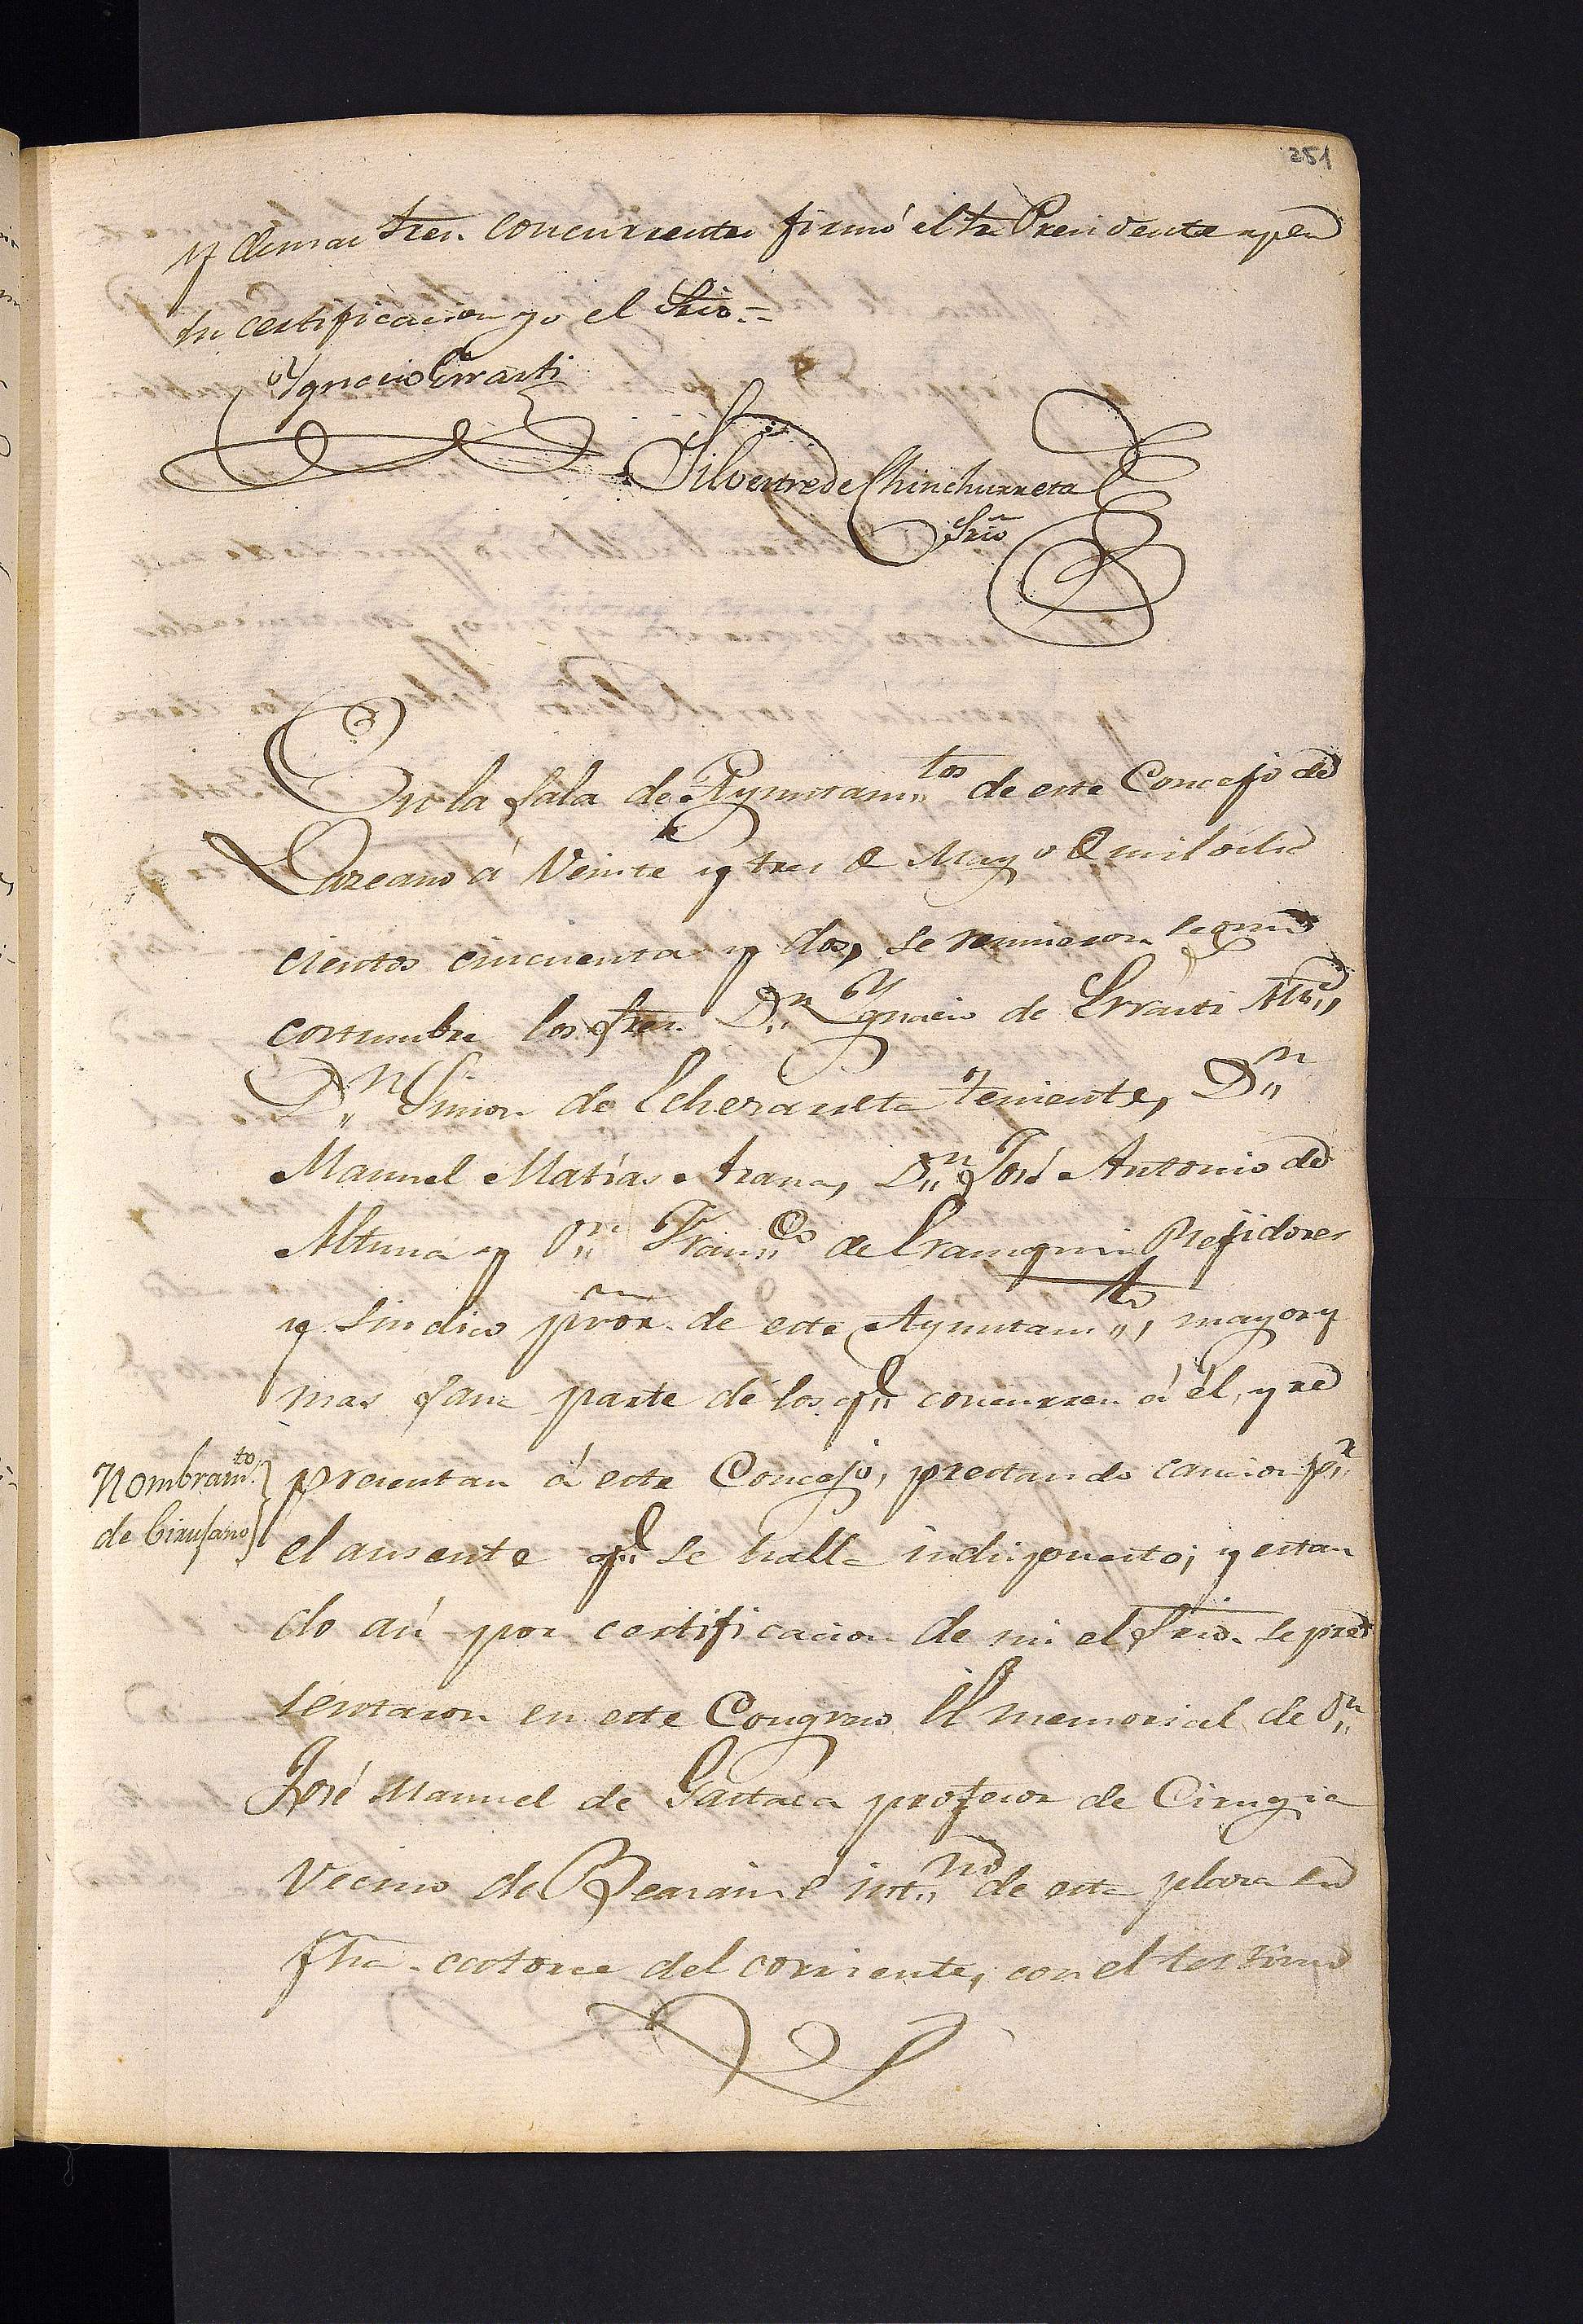 251
y demas Sres. concurrentes firmó el Sr Presidente y en
su certificacion yo el Srio.=
Ygnacio Errasti
Silvestre de Chinchurreta
Srio
En la sala de Ayuntam.tos de este Concejo de
Lazcano á Veinte y tres de Mayo de mil ocho
cientos cincuenta y dos, se reunieron segun
costumbre los Sres. D.n Ygnacio de Errasti Alc.e,
D.n Simon de Echezarreta teniente, D.n
Manuel Matías Arana, D.n José Antonio de
Altuna y D.n Fran.co de Regidores
y Sindico pror. de este Ayuntam.to, mayor y
mas sana parte de los q.e concurren á él, y re
presentan á este Concejo, prestando caucion p.r
Nombram.to
de Cirujano
el ausente q.e se halla indispuesto; y estan
do asi por certificacion de mi el Srio. se pre
sentaron en este Congreso el memorial de D.n
José Manuel de Gastaca profesor de Cirugia
Vecino de Beasain é int.no de esta plaza en
fha. catorce del corriente, con el testimo